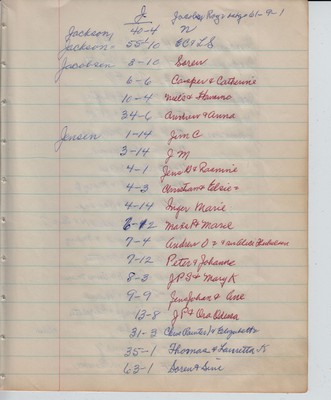 J. Jacobs, Roy 61-9-1
Jackson, 40-4 N
Jackson 55-10 & L S
Jacobsen 3-10 Soren
6-6 Casper & Catherine
10-4
34-6 Andrew & Anna
Jensen 1-14 Jim C
3-14 J M
4-1 Jens & Rasmine
4-3 Christian & Elsie
4-14 Inger Marie
6-12 & Marie
7-4 Andrew
7-12 Peter & Johanne
8-3 J P S & Mary K
9-9 Jens Johan & Ane
13-8 J P & Ora
31-3 & Elizabeth
35-1 Thomas & Lauretta K
63-1 Soren & Sine